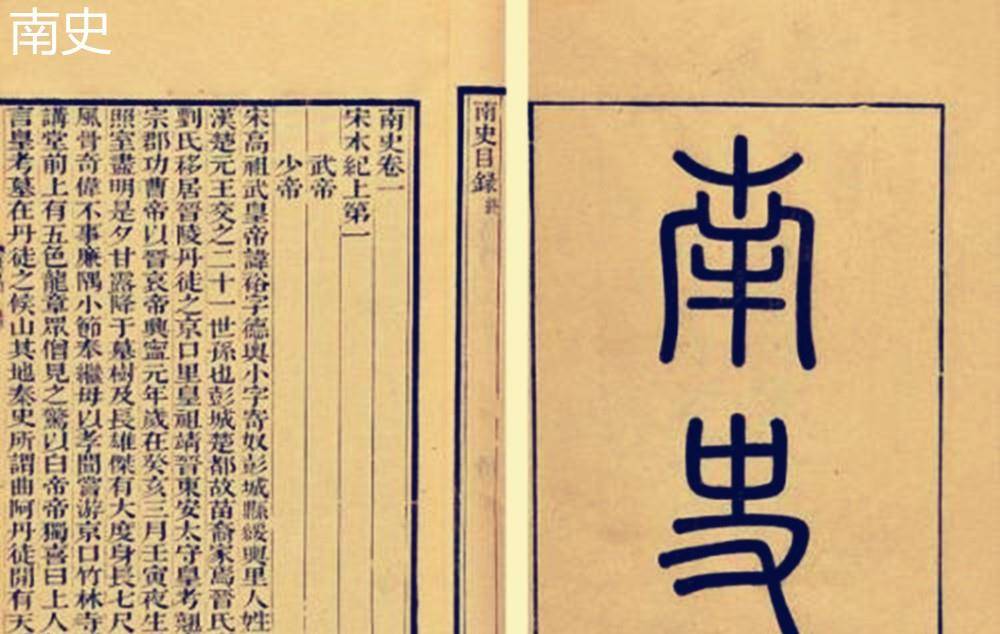 南史
南史
南史目錄
南史卷一
宋本紀上第一
武帝
少帝
宋高祖武皇帝諱裕字德輿小字寄奴彭城縣綏輿里人姓
漢楚元王交之二十一世孫也彭城楚都故苗裔家焉晉氏
劉氏移居晉陵丹徒之京口里皇祖靖晉東安太守皇考翹
宗郡功曹帝以晉哀帝興寧元年歲在癸亥三月壬寅夜生
照室盡明是夕甘露降于墓樹及長雄傑有大度身長七尺
風骨奇偉不事廉隅小節奉繼母以孝聞嘗游京口竹林寺
講堂前上有五色龍章眾僧見之驚以白帝帝獨喜曰上人
言皇考墓在丹徒之候山其地秦史所謂曲阿丹徒間有天